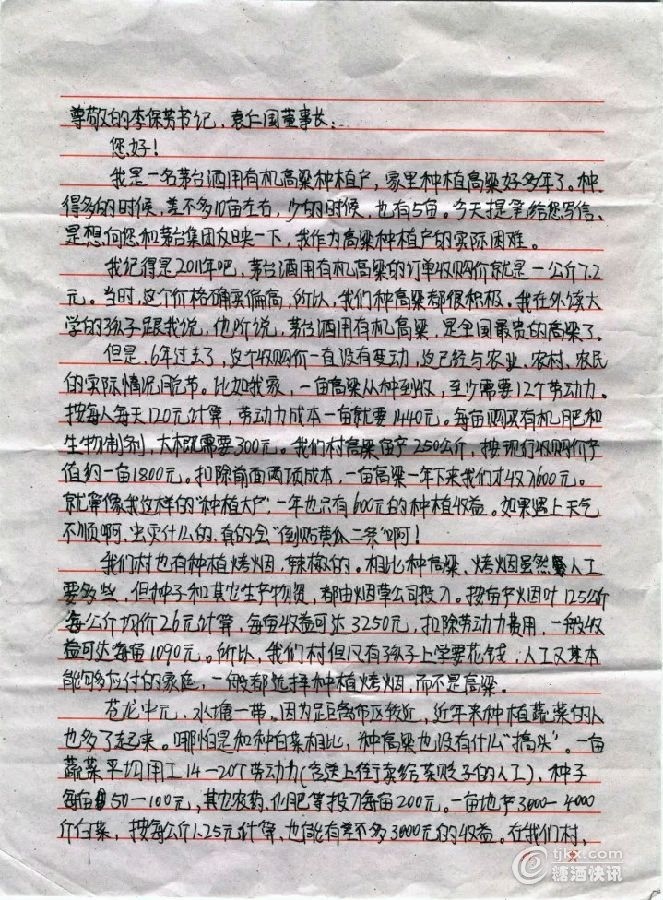 尊敬的李保芳书记、袁仁国董事长：
您好！
我是一名茅台酒用有机高粱种植户，家里种植高粱好多年了。种
得多的时候，差不多10亩左右，少的时候，也有5亩。今天提笔给您写信，
是想向您和茅台集团反映一下，我作为高粱种植户的实际困难。
我记得是2011年吧，茅台酒用有机高粱的订单收购价就是一公斤7.2
元。当时，这个价格确实偏高，所以，我们种高粱都很积极。我在外读大
学的孩子跟我说，他听说，茅台酒用有机高粱，是全国最贵的高粱了。
但是，6年过去了，这个收购价一直没有变动，这已经与农业、农村、农民
的实际情况脱节。比如我家，一亩高粱从种到收，至少需要12个劳动力。
按每人每天120元计算，劳动力成本一亩就要1440元。每亩购买有机肥和
生物制剂，大概需要300元。我们村高粱亩产250公斤，按现行收购价产
值约一亩1800元。扣除前面两项成本，一亩高粱一年下来我们才收入600元。
就算像我这样的“种植大户”，一年也只有600元的种植收益。如果遇上天气
不顺啊、出灾什么的，真的会“倒贴黄瓜二条”啊！
我们村也有种植烤烟、辣椒的。相比种高粱，烤烟虽然人工
要多些，但种子和其它生产物资，都由烟草公司投入。按亩产烟叶125公斤
每公斤均价26元计算，每亩收益可达3250元，扣除劳动力费用，一般收
益可达每亩1090元。所以，我们村但凡有孩子上学要花钱，人工又基本
能够应付的家庭，一般都选择种植烤烟，而不是高粱。
苍龙中元，水塘一带。因为距离市区较近，近年来种植蔬菜的人
也多了起来。哪怕是和种白菜相比，种高粱也没有什么“搞头”。一亩
蔬菜平均用工14—20个劳动力（含送上街卖给菜贩子的人工），种子
每亩50—100元，其它农药、化肥等投入每亩200元。一亩地产3000—4000
斤白菜，按每公斤1.25元计算，也能有差不多3000元的收益。在我们村，
tjkx.com
糖酒快讯